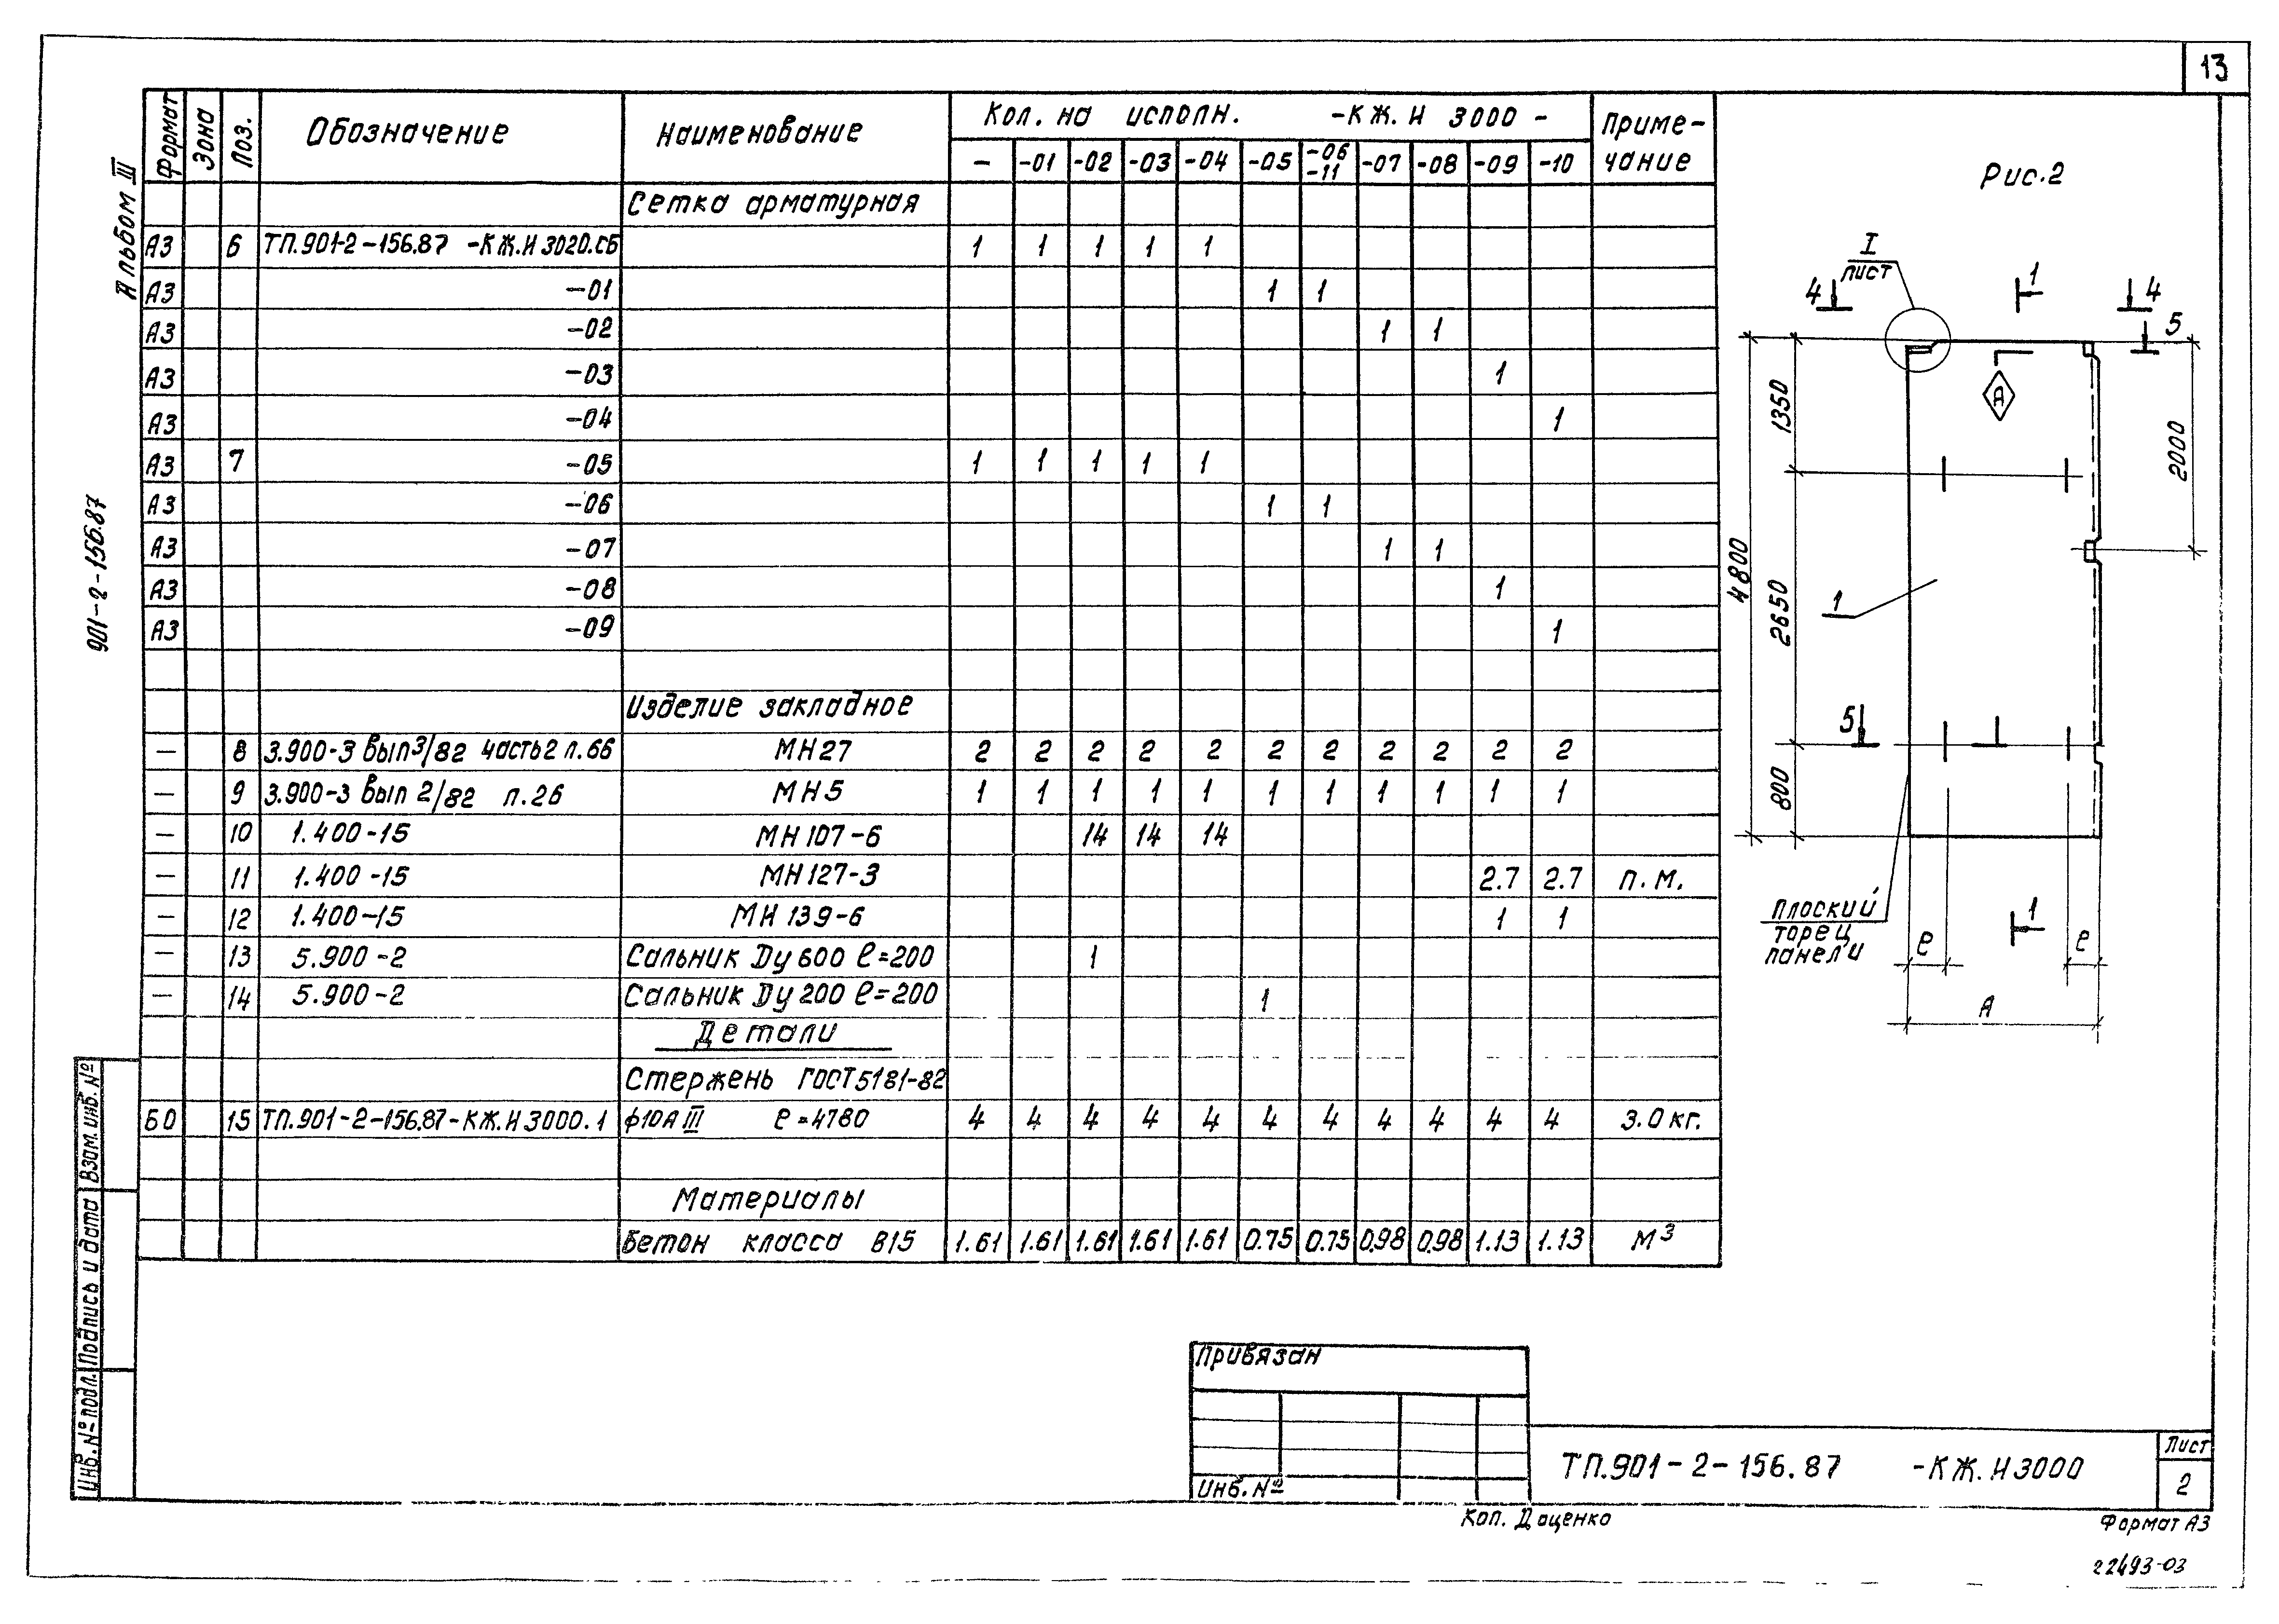 13
Альбом III
901-2-156.87
Формат Зона Поз. Обозначение Наименование Кол. на исполн. -КЖ.И 3000 - Приме-чание
— -01 -02 -03 -04 -05 -06 -11 -07 -08 -09 -10
Сетка арматурная
А3 6 ТП.901-2-156.87 -КЖ.И3020.СБ 1 1 1 1 1
А3 -01 1 1
А3 -02 1 1
А3 -03 1
А3 -04 1
А3 7 -05 1 1 1 1 1
А3 -06 1 1
А3 -07 1 1
А3 -08 1
А3 -09 1
Изделие закладное
— 8 3.900-3 Вып3/82 часть2 л.66 МН27 2 2 2 2 2 2 2 2 2 2 2
— 9 3.900-3 Вып 2/82 л.26 МН5 1 1 1 1 1 1 1 1 1 1 1
— 10 1.400-15 МН107-6 14 14 14
— 11 1.400-15 МН127-3 2.7 2.7 п.м.
— 12 1.400-15 МН139-6 1 1
— 13 5.900-2 Сальник Ду600 ℓ=200 1
— 14 5.900-2 Сальник Ду200 ℓ=200 1
Детали
Стержень ГОСТ5181-82
Б0 15 ТП.901-2-156.87-КЖ.И3000.1 ф10АIII ℓ=4780 4 4 4 4 4 4 4 4 4 4 4 3.0кг.
Материалы
Бетон класса В15 1.61 1.61 1.61 1.61 1.61 0.75 0.75 0.98 0.98 1.13 1.13 М³
Рис.2
I
лист
4
1
4
5
А
1350
2000
4800
2650
1
5
800
плоский
торец
панели
1
ℓ
ℓ
А
Взам.инв.№
Подпись и дата
Инв.№подл.
Привязан
Инв.№
ТП.901-2-156.87 -КЖ.И3000
Лист
2
Коп. Даценко
Формат А3
22493-03